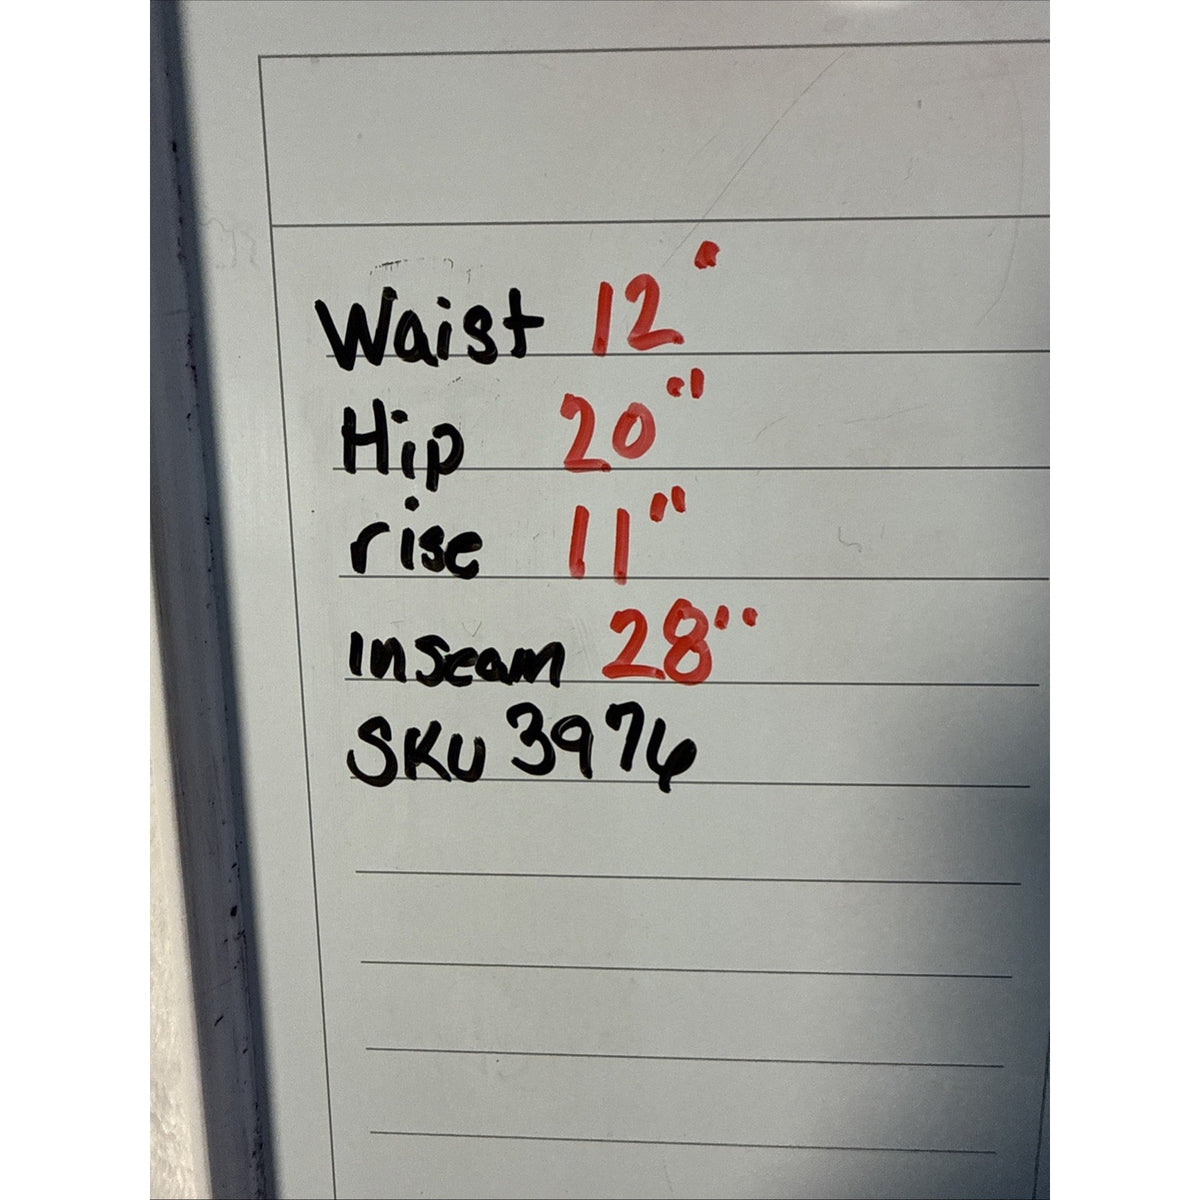 Waist 12"
Hip 20"
rise 11"
Inseam 28"
SKU 3976